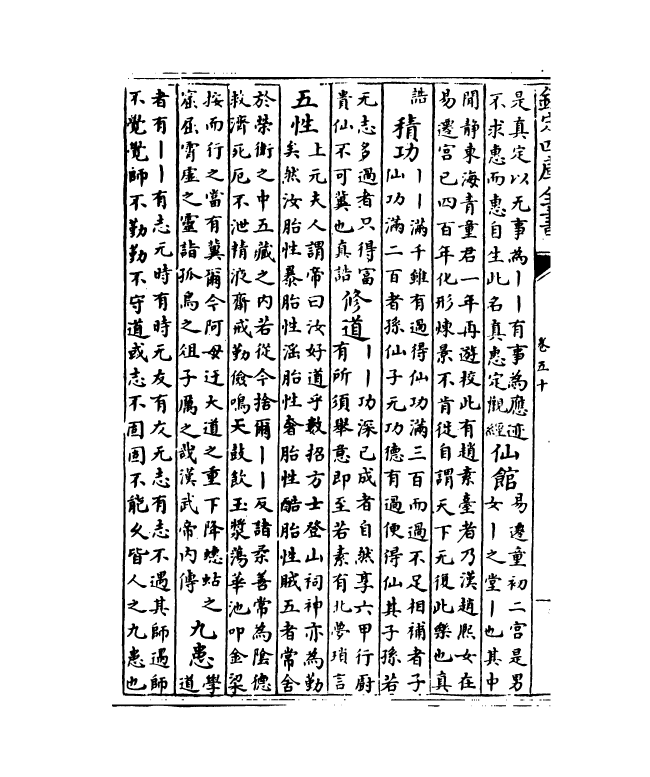 欽定四庫全書
卷五十
一
是真定以无事為丨丨有事為應迹
不求恵而恵自生此名真恵定觀經
仙館
易遷重初二宮是男
女丨之堂丨也其中
聞靜東海青童君一年再遊校此有趙素臺者乃漢趙熙女在
易遷宮已四百年化形煉景不肯徙自謂天下无復此樂也真
誥
積功
丨丨滿千雖有過得仙功滿三百而過不足相補者子
仙功滿二百者孫仙子无功德有過便得仙其子孫若
无志多過者只得富
貴仙不可冀也真誥
修道
丨丨功深已成者自然享六甲行厨
有所須舉意即至若素有北夢瑣言
五性
上元夫人謂帝曰汝好道乎數招方士登山祠神亦為勤
矣然汝胎性暴胎性淫胎性奢胎性酷胎性賊五者常舍
於榮衛之中五藏之内若從今捨爾丨丨反諸柔善常為陰德
救濟死厄不泄精液齋戒勤儉鳴天鼓飲玉漿蕩華池叩金梁
按而行之當有冀爾今阿母迂大道之重下降蟪蛄之
窟屈霄虚之靈詣孤鳥之徂子厲之哉漢武帝内傳
九患
學
道
者有丨丨有志无時有時无友有友无志有志不遇其師遇師
不覺覺師不勤勤不守道或志不固固不能久皆人之九患也